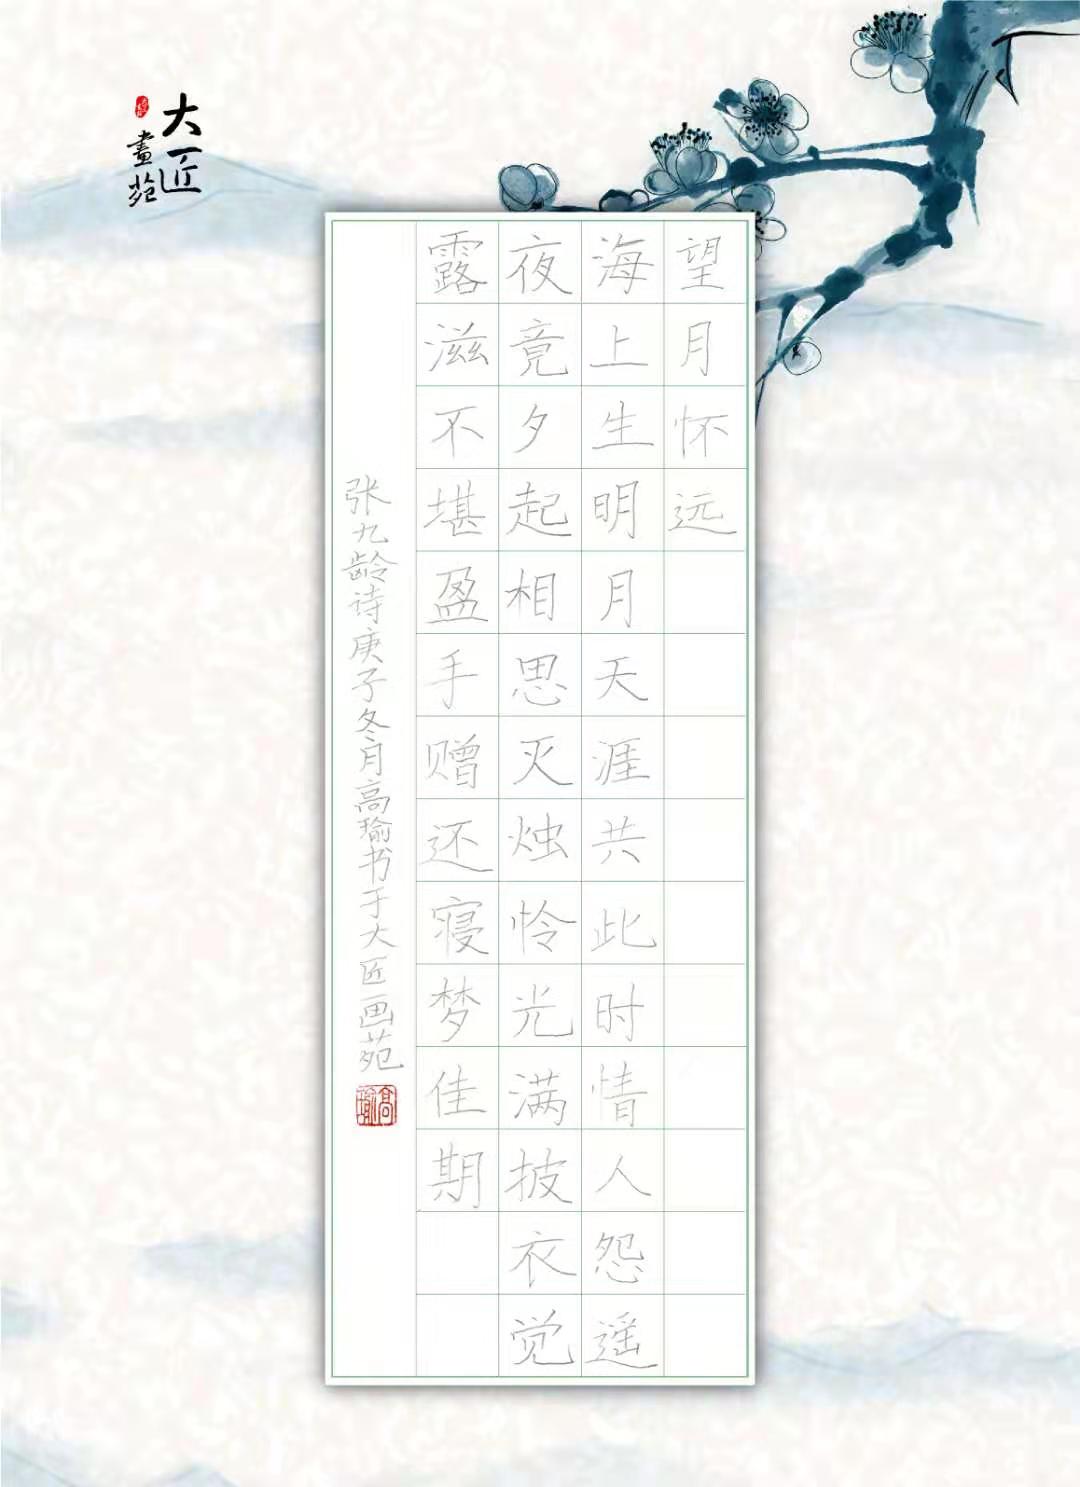 大匠
畫苑
望月怀远
海上生明月天涯共此时情人怨遥
夜竟夕起相思灭烛怜光满披衣觉
露滋不堪盈手赠还寝梦佳期
张九龄诗庚子冬月高瑜书于大匠画苑
高瑜